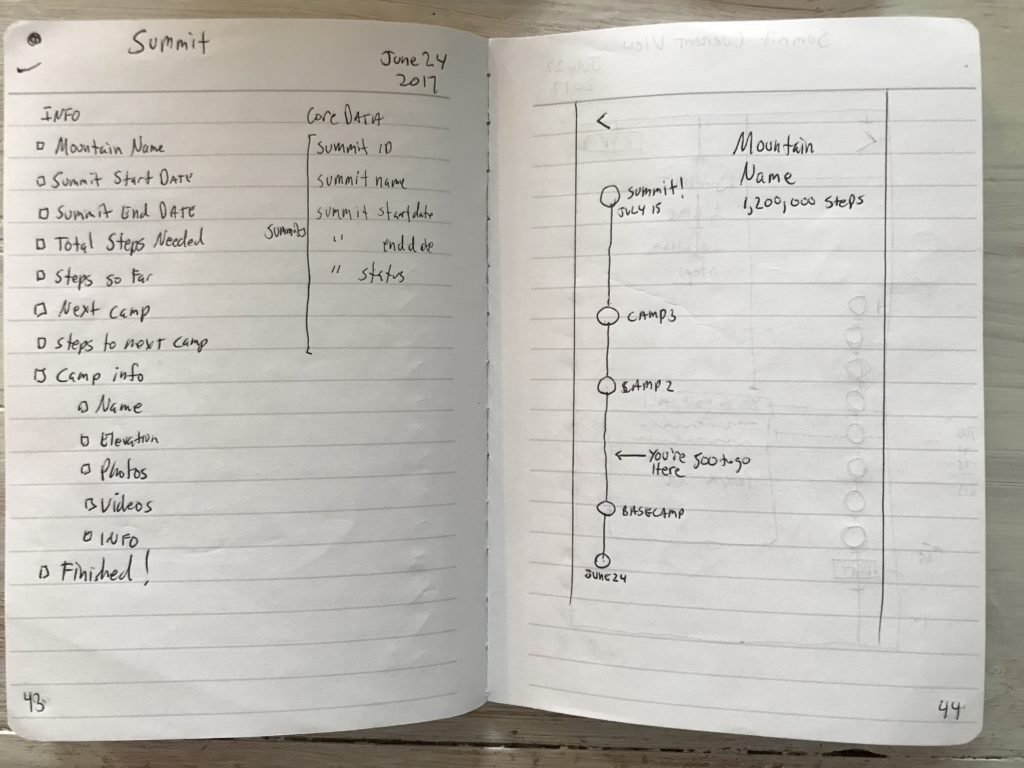 Summit
June 24
2017
INFO
Mountain Name
Summit Start DATE
Summit End DATE
Total Steps Needed
Steps so Far
Next camp
Steps to next camp
Camp info
Name
Elevation
Photos
Videos
INFO
Finished!
Core DATA
Summit
summit ID
summit name
summit startdate
" enddate
" status
43
<
Mountain
Name
1,200,000 steps
Summit!
JULY 15
CAMP3
CAMP2
← You're 500 to go
Here
BASECAMP
JUNE 24
44
Summit Current View
July 22
2017